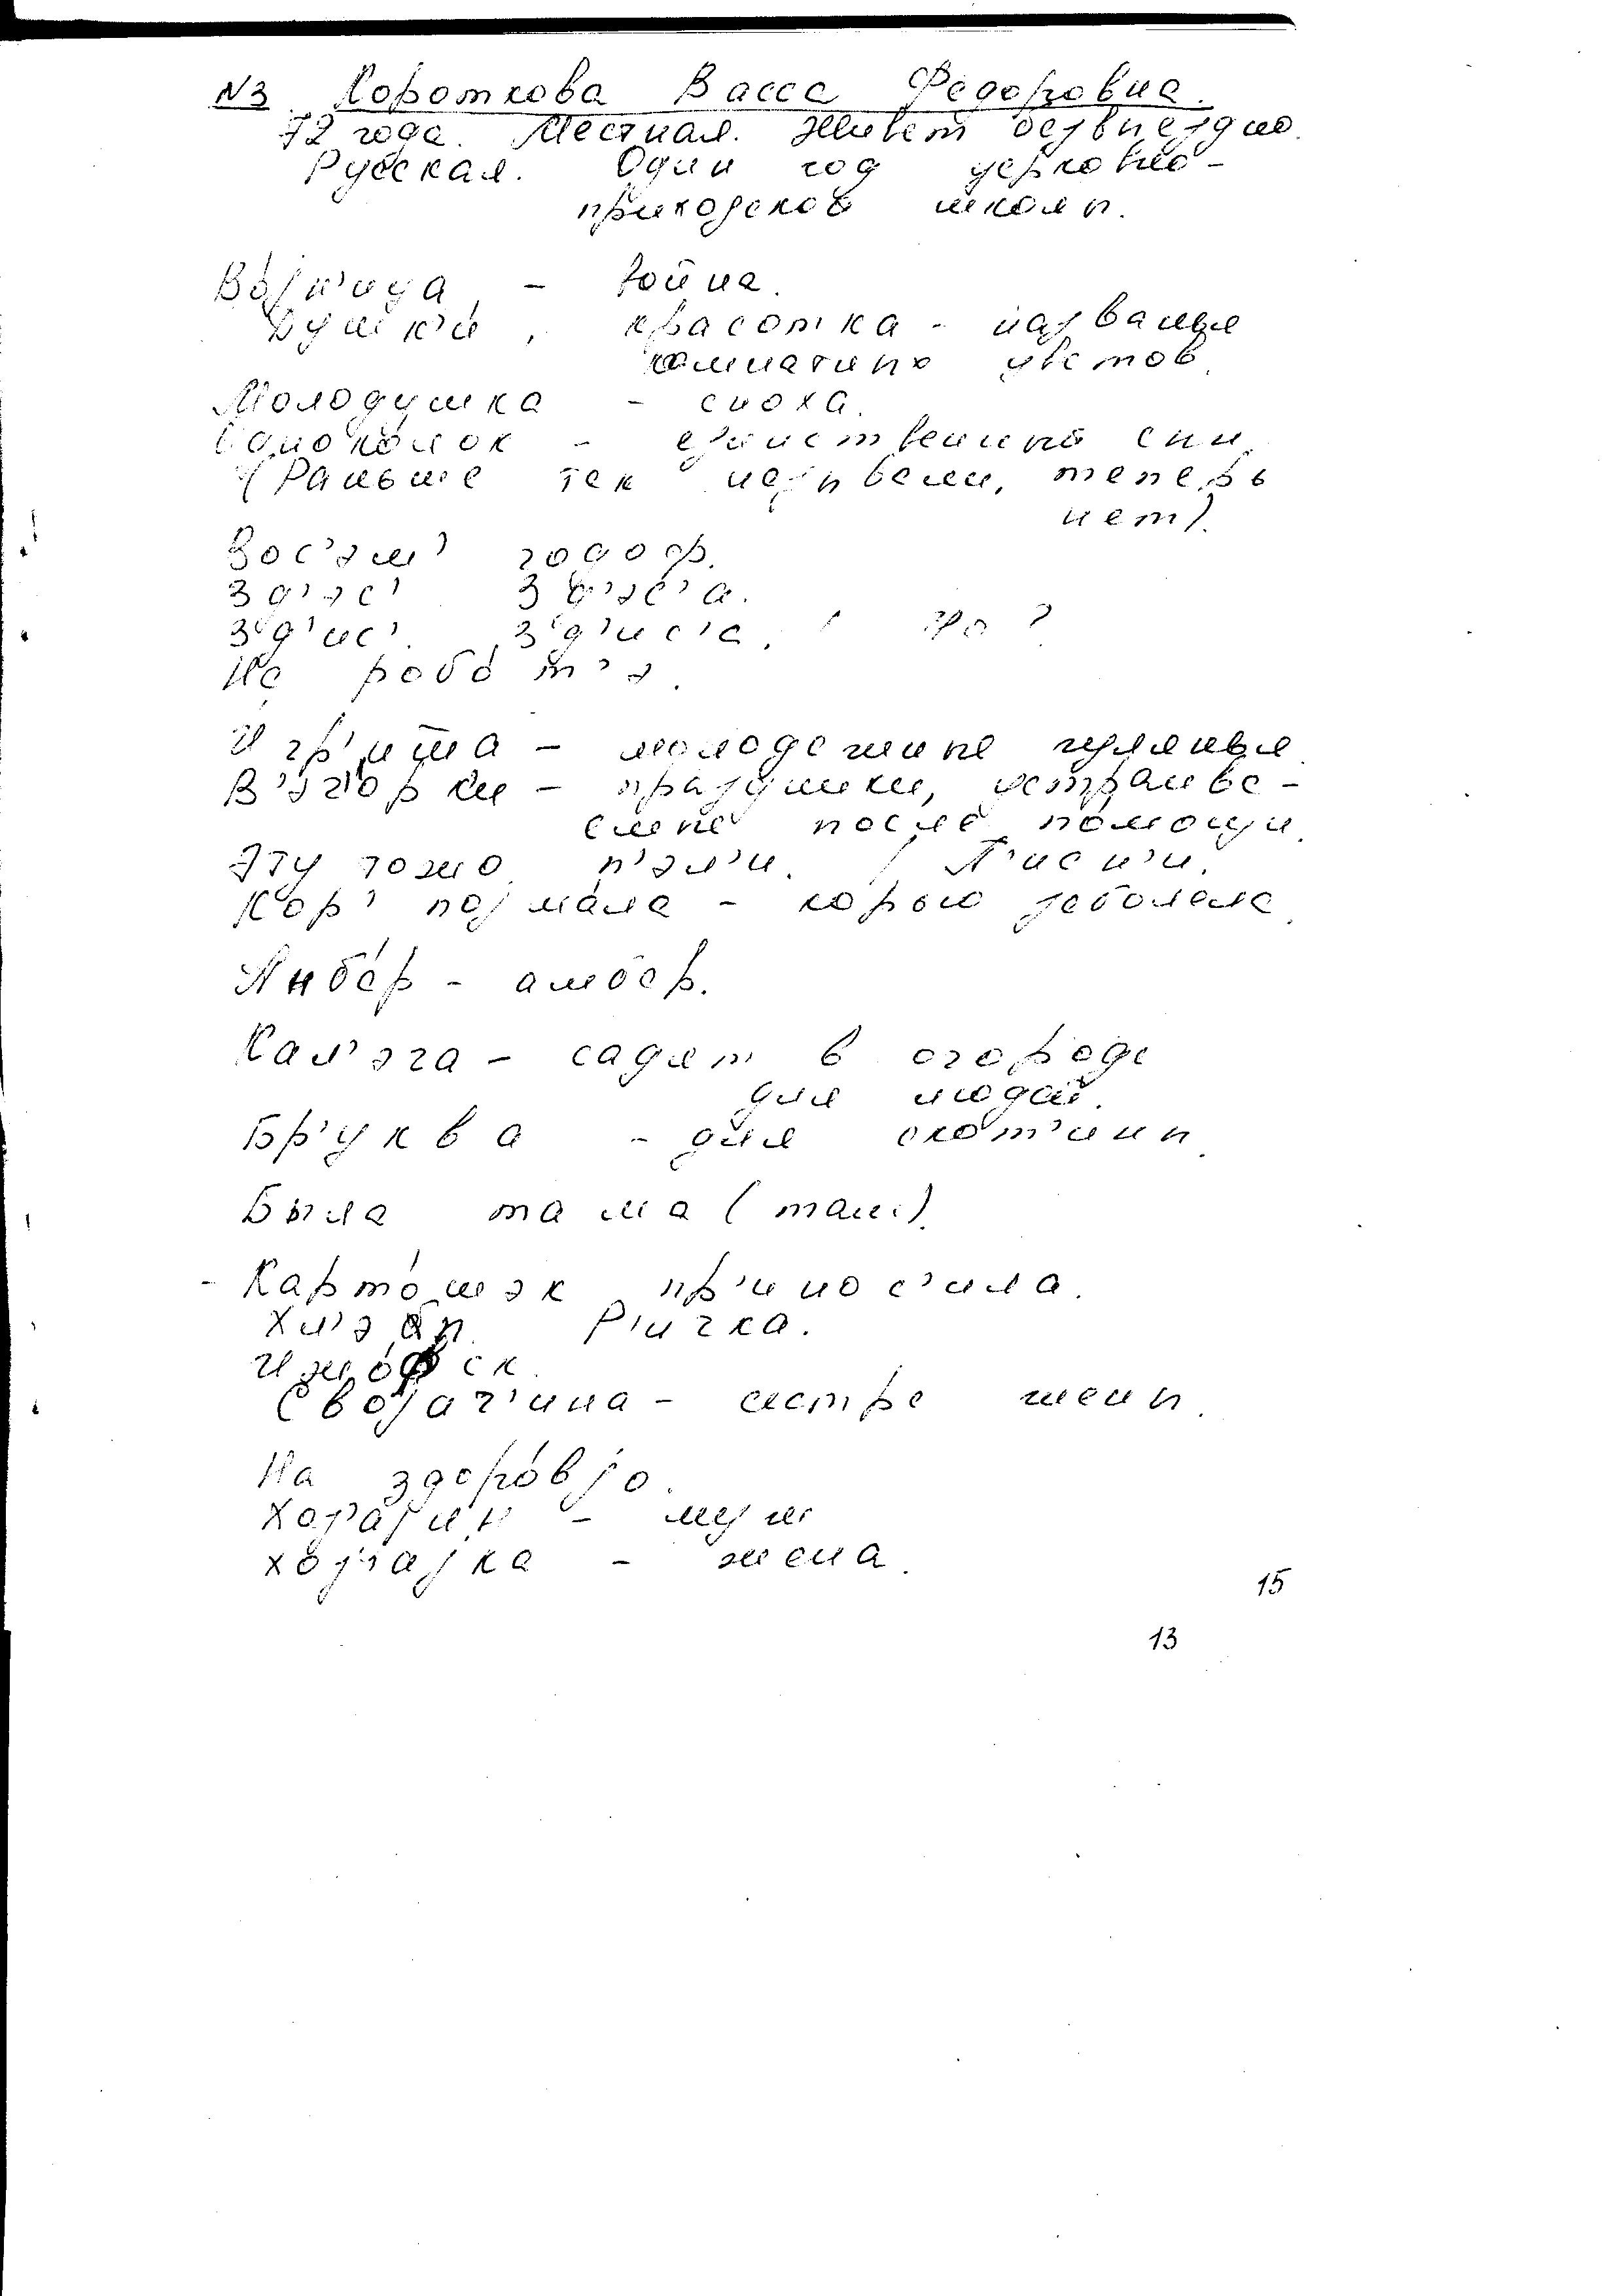 N3. Короткова Васса Федоровна.
72 года. Местная. Живет безвыездно.
Русская. Один год церковно-
приходской школы.
Војн'ица - война.
Душк'и, красотка - названья
комнатных цветов.
Молодушка - сноха.
Одноконок - единственный сын.
(Раньше так называли, теперь
нет).
Вос'эм' годоф.
Зд'эс' Зд'эс'а.
З'д'ис'. З'д'ис'а.
На робот'э.
Игр'ишша - молодежные гулянья.
В'эч'орки - праздники, устраива-
емые после помощи.
Эту тожо п'эл'и. П'исн'и.
Кор' појмала - корью заболела.
Анбар - амбар.
Кал'эга - садят в огороде
для людей.
Бр'уква - для скот'ины.
Была тама (там).
- Картошэк пр'инос'ила.
Хл'эбы. Р'ичка.
Ижофск.
Својач'ина - сестра жены.
На здоровјо.
Хоз'ајин - муж
хоз'ајка - жена.
15
13